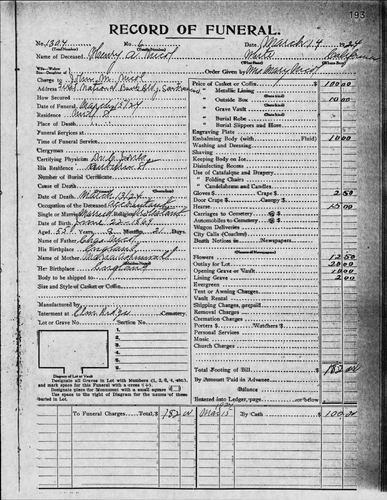 193
RECORD OF FUNERAL.
No. 1304 No. 6 Date, March 14 24
(Total Number) (Yearly Number)
Name of Deceased, Henry A. Nicol White
Charge to John M. Nicol Order Given by Mrs Mary Nicol
Address,
How Secured
Date of Funeral March 15/24
Residence
Place of Death,
Funeral Services at
Time of Funeral Service
Clergyman
Certifying Physician, Dr. C.
His Residence
Number of Burial Certificate
Cause of Death
Date of Death March 13/24
Occupation of the Deceased
Single or Married Married
Date of Birth June 22 1869
Aged, 52 Years, 8 Months, 21 Days.
Name of Father,
His Birthplace England
Name of Mother
Her Birthplace England
Body to be shipped to
Size and Style of Casket or Coffin,
Manufactured by
Interment at Elm Ridge Cemetery.
Lot or Grave No. Section No.
1
Diagram of Lot or Vault
Designate all Graves in Lot with Numbers (1, 2, 3, 4, etc.), and mark space for this Funeral with a cross (+).
Designate place for Monument with a small square
Use space to the right of Diagram for the names of those buried in Lot.
Price of Casket or Coffin, $
" Metallic Lining
" Outside Box 10 00
" Grave Vault
" Burial Robe
" Burial Slippers and Hose
Engraving Plate
Embalming Body (with Fluid) 10 00
Washing and Dressing
Shaving
Keeping Body on Ice
Disinfecting Rooms
Use of Catafalque and Drapery
" Folding Chairs
" Candelabrum and Candles
Gloves $ Crape $ 2 50
Door Crape Canopy $
Hearse 15 00
Carriages to Cemetery @ $
Automobiles to Cemetery @ $
Wagon Deliveries
City Calls (Coaches)
Death Notices in Newspapers
Flowers 12 50
Outlay for Lot
Opening Grave or Vault
Lining Grave 2 00
Evergreen
Tent or Awning
Vault Rental
Shipping Charges, prepaid
Removal Charges
Cremation Charges
Porters $ Watchers $
Personal Services
Music
Church Charges
Total Footing of Bill $ 182 00
By Amount Paid in Advance
Balance
Entered into Ledger, page or below.
To Funeral Charges, Total, $ 182 00 Mar 15 By Cash $ 100 00